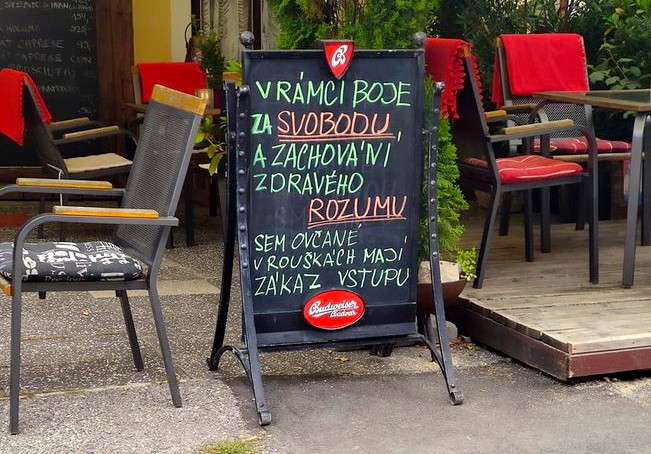 V RÁMCI BOJE
ZA SVOBODU,
A ZACHOVÁNÍ
ZDRAVÉHO
ROZUMU
SEM OVČANÉ
V ROUŠKÁCH MAJÍ
ZÁKAZ VSTUPU
Budweiser
Budvar
STEAK
CAPRESE